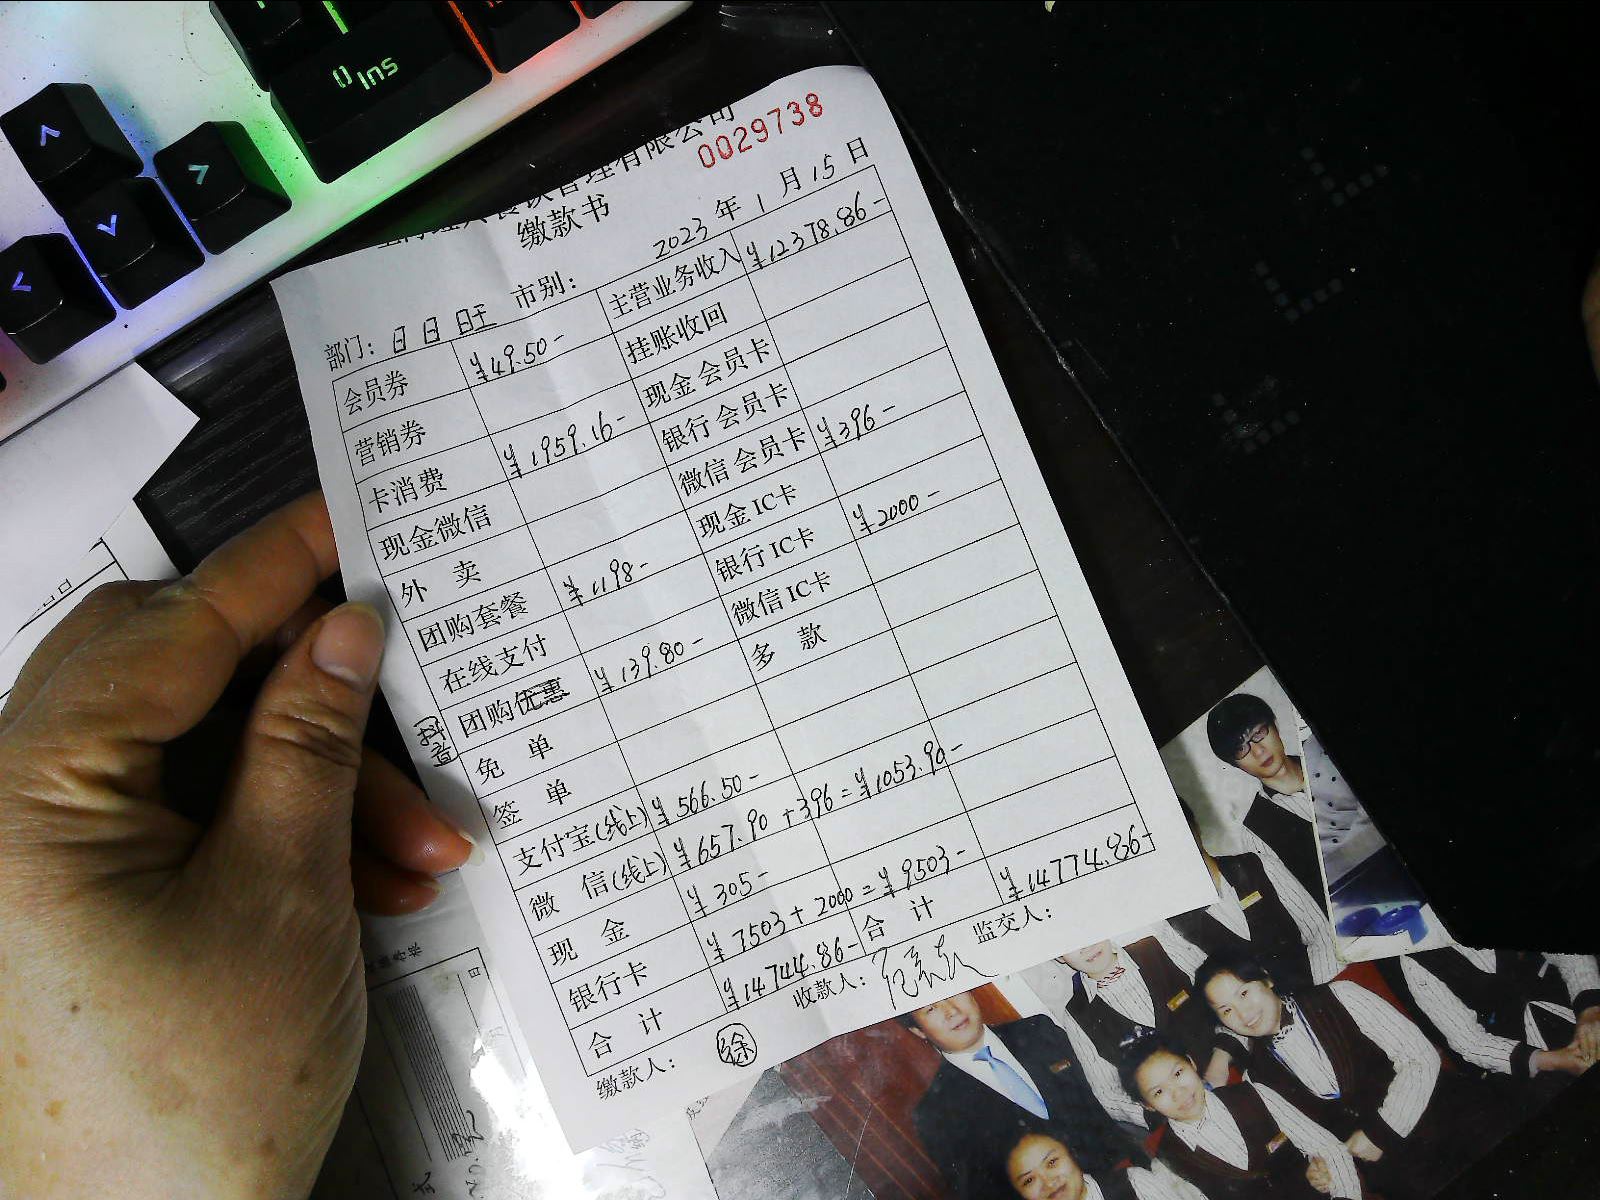 0 Ins
餐饮管理有限公司
0029738
缴款书
2023 年 1 月 15 日
部门: 日日旺 市别:
会员券 ¥49.50- 主营业务收入 ¥12378.86-
营销券 挂账收回
卡消费 ¥1959.16- 现金会员卡
现金微信 银行会员卡
外 卖 微信会员卡 ¥396-
团购套餐 ¥1198- 现金IC卡
在线支付 银行IC卡 ¥2000-
抖音 团购优惠 ¥139.80- 微信IC卡
免 单 多 款
签 单
支付宝(线上) ¥566.50-
微 信(线上) ¥657.90+396=¥1053.90-
现 金 ¥305-
银行卡 ¥7503+2000=¥9503-
合 计 ¥14744.86- 合 计 ¥14774.86-
缴款人: 徐 收款人: 监交人: